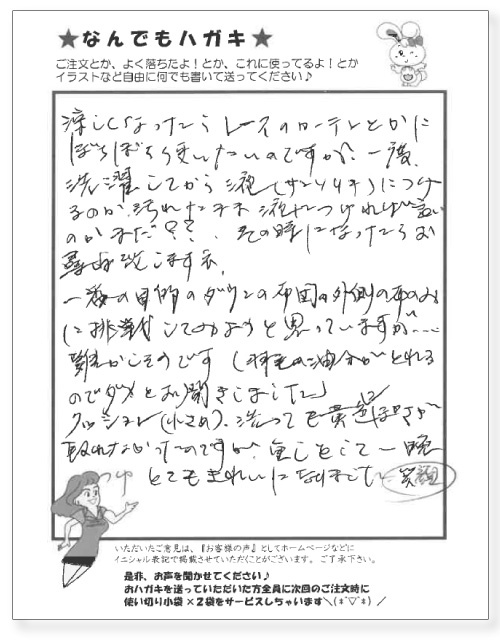 ★なんでもハガキ★
ご注文とか、よく落ちたよ！とか、これに使ってるよ！とか
イラストなど自由に何でも書いて送ってください♪
涼しくなったらレースのカーテンとかに
ぼちぼち使いたいのですが、一度、
洗濯してから液(サンリキ)につけ
るのか、汚れたまま液につければ言い
のかまだ??、その時になったらお
電話致しますネ、
一番の目的のダウンの布団の外側の布のみ
に挑戦してみようと思っていますが……
難かしそうです(羽毛の油分がとれる
のでダメとお聞きしました)
クッション(小さめ)、洗っても黄色っぽさが
取れなかったのですが、
一晩
とてもきれいになりました 笑顔
いただいたご意見は、『お客様の声』としてホームページなどに
イニシャル表記で掲載させていただくことがございます。ご了承下さい。
是非、お声を聞かせてください♪
おハガキを送っていただいた方全員に次回のご注文時に
使い切り小袋×2袋をサービスしちゃいます＼(*ˇ∇ˇ*)／